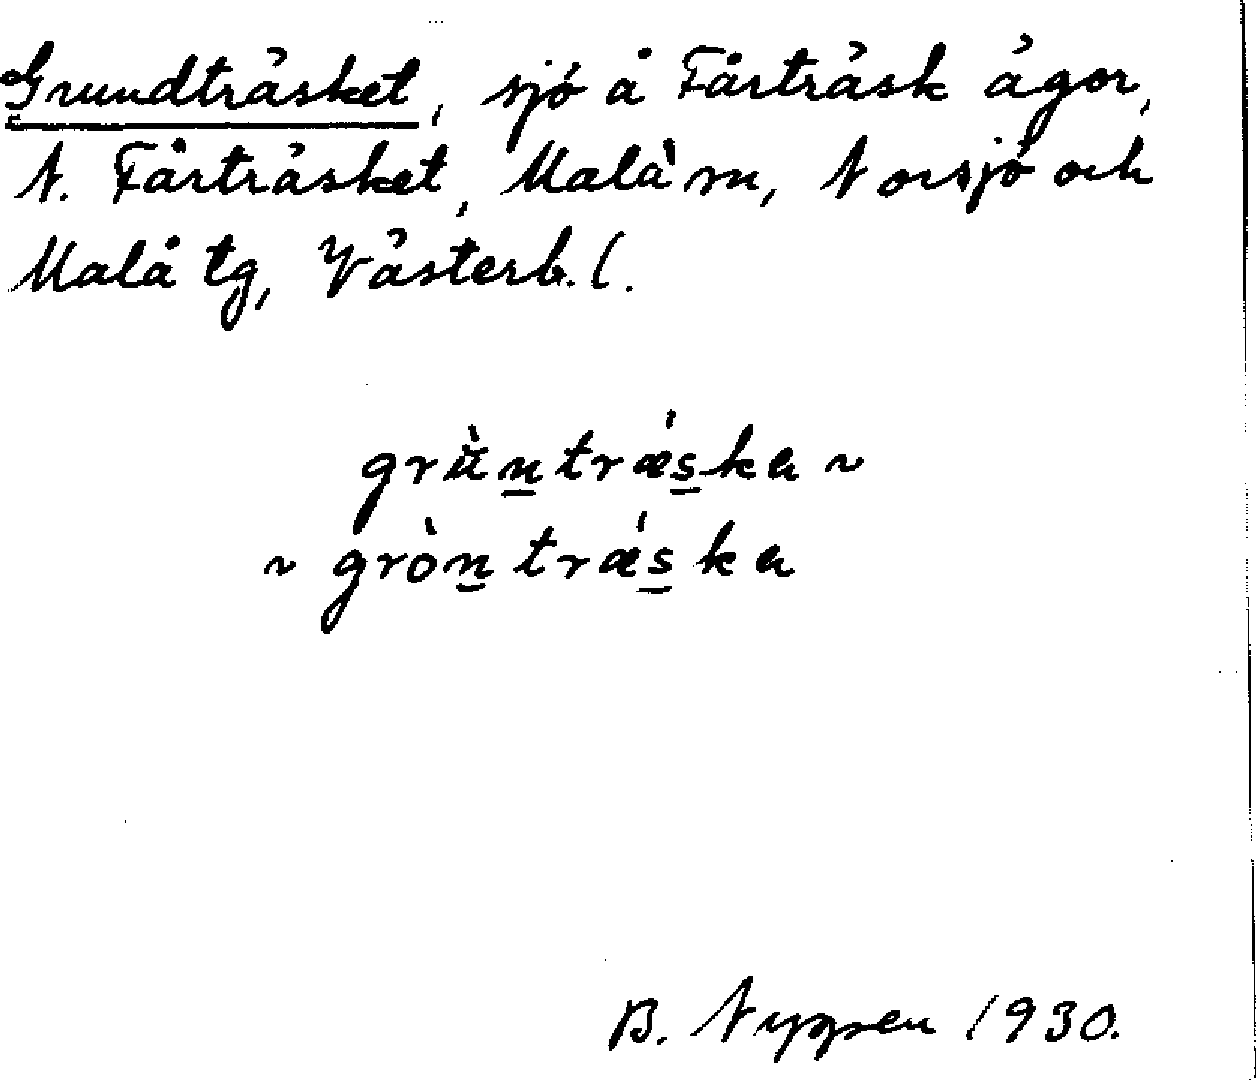 Grundträsket, sjö å Fårträsk ägor,
N. Fårträsket, Malå sn, Norsjö och
Malå tg, Västerb. l.
grùntrǽska ~
~ gròntrǽska
B. Nyppen 1930.